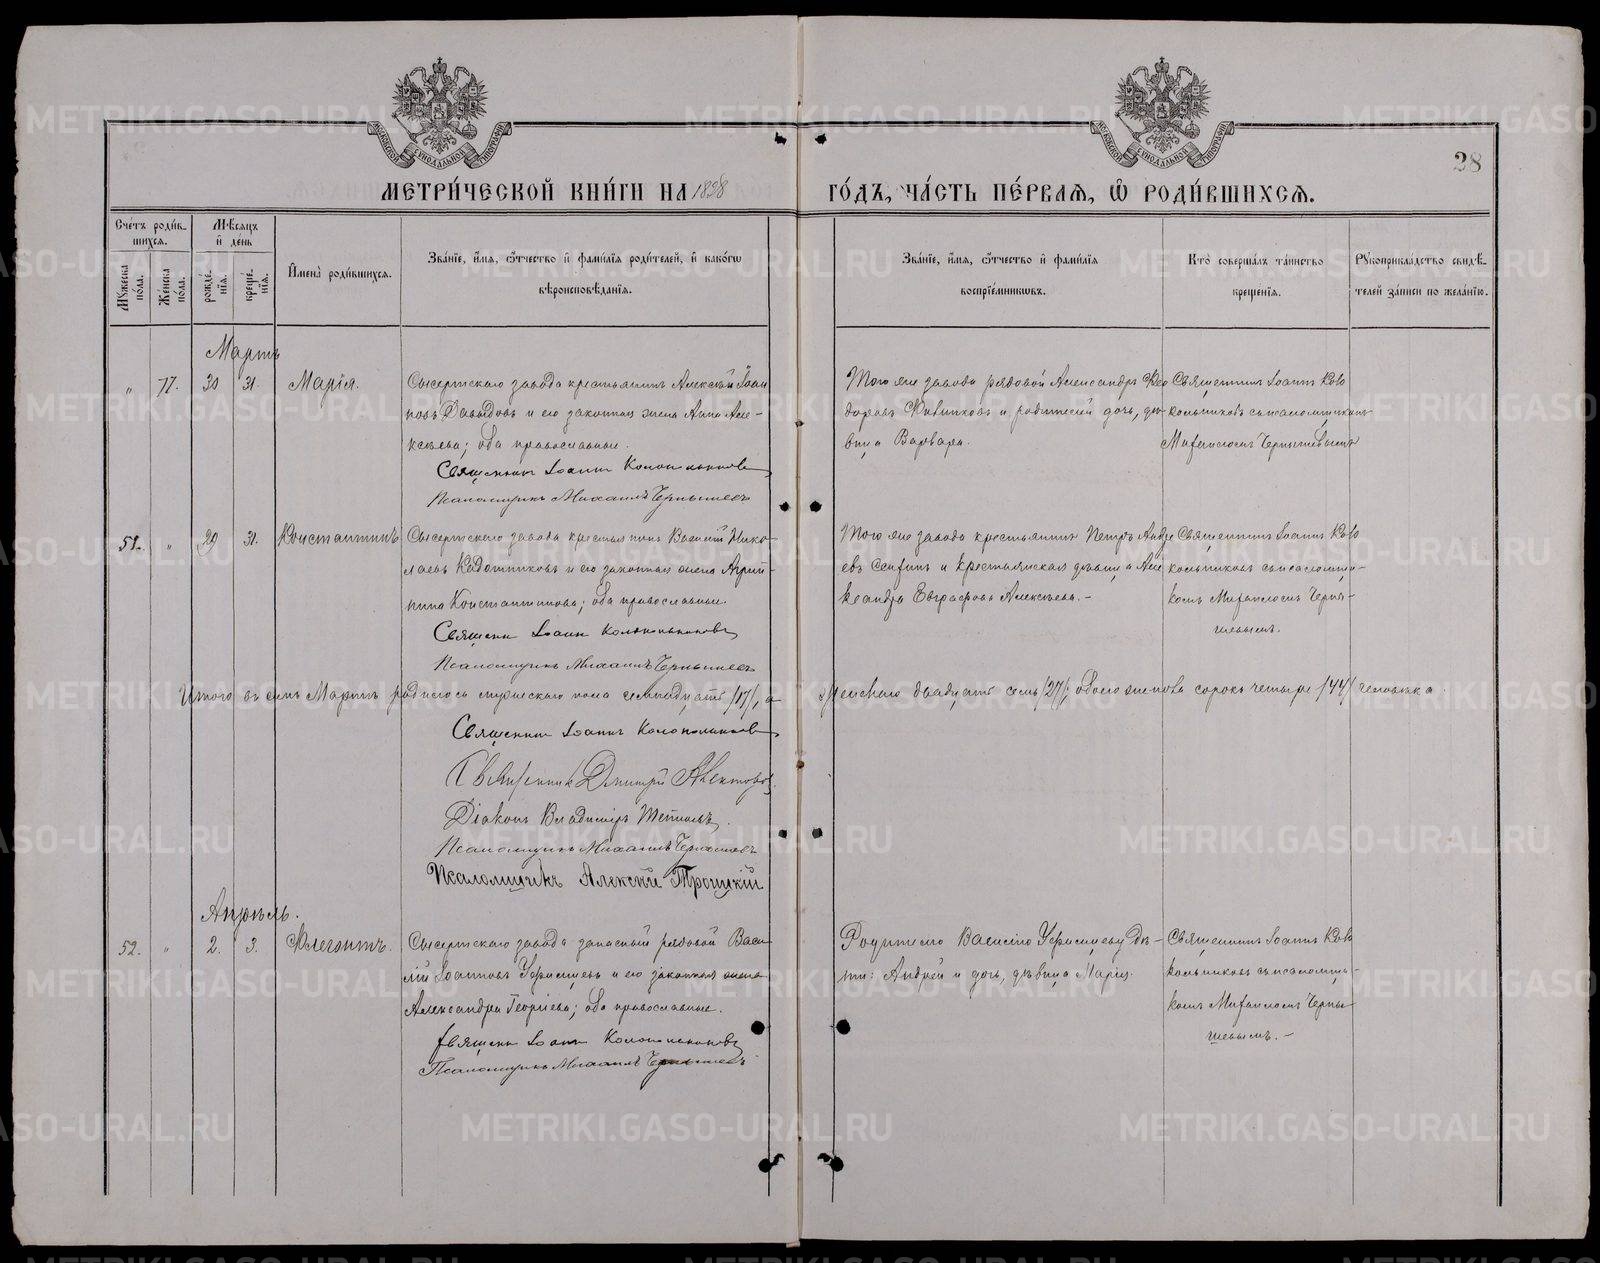 28
МЕТРИ́ЧЕСКОЙ КНИ́ГИ НА 1898
ГО́ДЪ, ЧА́СТЬ ПЕ́РВАЯ, Ѡ РОДИ́ВШИХСЯ.
Сче́тъ роди́в-
шихся.
Мꙋжеска по́ла.
Же́нска по́ла.
Мѣ́сяцъ
и҆ де́нь
рожде́-
нїя.
креще́-
нїя.
И҆мена̀ роди́вшихся.
Зва́нїе, и҆́мя, ѻ҆́тчество и҆ фами́лїя роди́телей, и҆ како́гѡ
вѣроисповѣ́данїя.
Зва́нїе, и҆́мя, ѻ҆́тчество и҆ фами́лїя
воспрїе́мникѡвъ.
Кто̀ соверша́лъ та́инство
креще́нїя.
Рꙋкоприкла́дство свидѣ́-
телей за́писи по жела́нїю.
Мартъ
„ 77. 30 31. Марія.
Сысертскаго завода крестьянинъ Алексѣй Іоан
новъ Давыдовъ и его законная жена Анна Але-
ксѣева; оба православные.
Священникъ Іоаннъ Колокольниковъ
Псаломщикъ Михаилъ Чернышевъ
Того же завода рядовой Александръ Ѳео
доровъ и родителей дочь, дѣ-
вица Варвара.
Священникъ Іоаннъ Коло
кольниковъ съ псаломщикомъ
Михаиломъ Чернышевымъ
51. „ 29 31. Константинъ
Сысертскаго завода крестьянинъ Василій Нико-
лаевъ Кадошниковъ и его законная жена Агрип-
пина Константинова; оба православные.
Священ Іоанн Колокольниковъ
Псаломщикъ Михаилъ Чернышевъ
Того же завода крестьянинъ Петръ Андре
евъ и крестьянская дѣвица Але
ксандра Евграфова Алексѣева. -
Священникъ Іоаннъ Коло
кольниковъ съ псаломщи-
комъ Михаиломъ Черны-
шевымъ.
Итого въ семъ Мартѣ родилось мужескаго пола семнадцать /17/, а женскаго двадцать семь /27/; обоего же пола сорокъ четыре /44/ человѣка.
Священникъ Іоаннъ Колокольниковъ
Священникъ Дмитрій
Діаконъ Владиміръ
Псаломщикъ Михаилъ Чернышевъ
Псаломщикъ Алексѣй Троицкій
Апрѣль.
52. „ 2. 3. Флегонтъ.
Сысертскаго завода запасный рядовой Васи
лій Іоанновъ и его законная жена
Александра Георгіева; оба православные.
Священ Іоанн Колокольниковъ
Псаломщикъ Михаилъ Чернышевъ
Василію дѣ-
ти: Андрей и дочь, дѣвица Марія.
Священникъ Іоаннъ Коло
кольниковъ съ псаломщи-
комъ Михаиломъ Черны-
шевымъ. -
METRIKI.GASO-URAL.RU